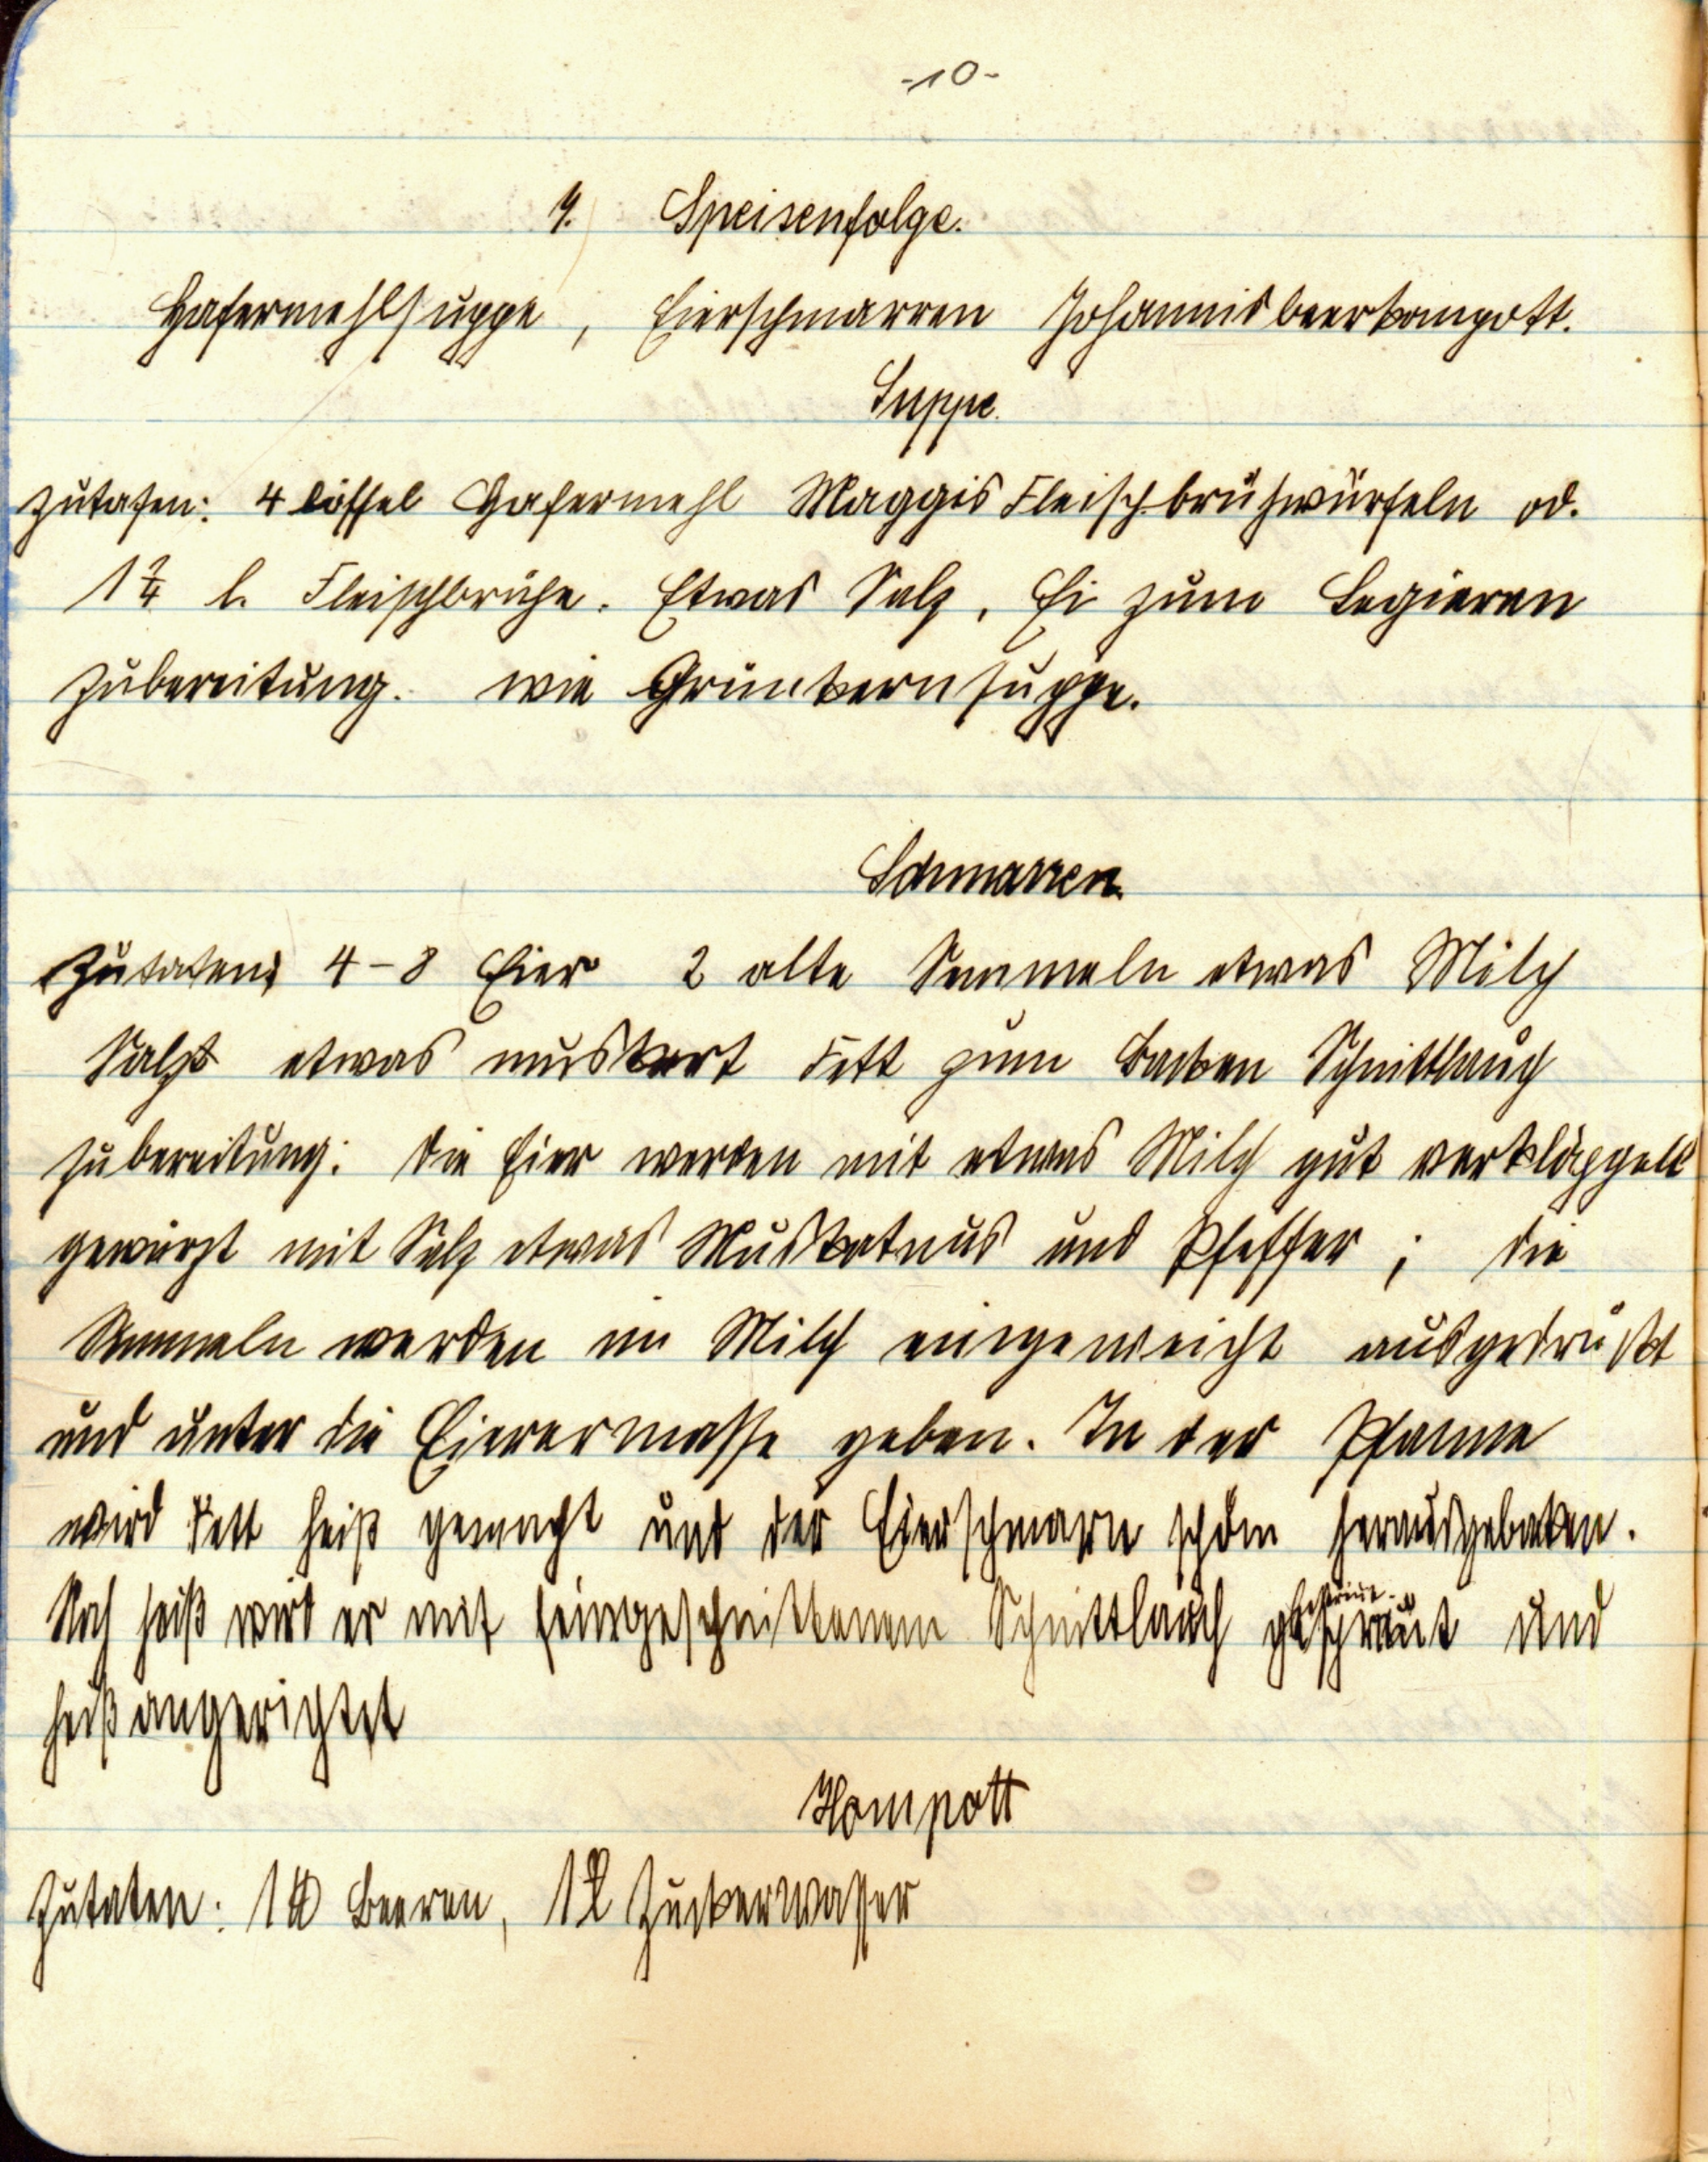 -10-
9. Speisenfolge.
Hafermehlsuppe, Eierschmarren Johannisbeerkompott.
Suppe.
Zutaten: 4 Löffel Hafermehl Maggis Fleischbrühwürfeln od.
1 2/4 l. Fleischbrühe. Etwas Salz, Ei zum Legieren
Zubereitung. wie Grünkernsuppe.
Schmarren.
Zutaten: 4-8 Eier 2 alte Semmeln etwas Milch
Salz etwas muskart Fett zum Backen Schnittlauch
Zubereitung: Die Eier werden mit etwas Milch gut verkläppelt
gewürzt mit Salz etwas Muskatnus und Pfeffer; die
Semmeln werden in Milch eingeweicht ausgedrückt
und unter die Eierermasse geben. In der Pfanne
wird Fett heiß gemacht und der Eierschmarn schön herausgebaken.
Noch heiß wird er mit feingeschnittenem Schnittlauch bestreut und
heiß angerichtet
Kompott
Zutaten: 1 ℔ Beeren, 1 l Zuckerwasser